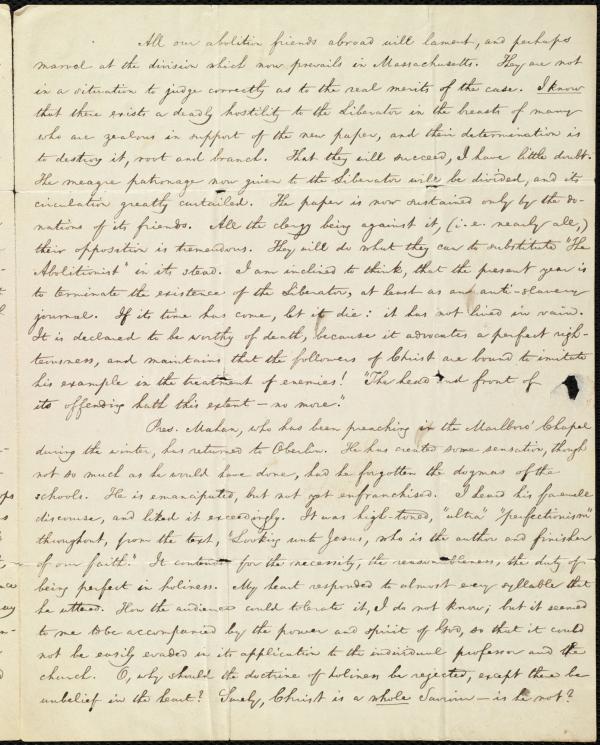 All our abolition friends abroad will lament, and perhaps
marvel at the division which now prevails in Massachusetts. They are not
in a situation to judge correctly as to the real merits of the case. I know
that there exists a deadly hostility to the Liberator in the breasts of many
who are zealous in support of the new paper, and their determination is
to destroy it, root and branch. That they will succeed, I have little doubt.
The meagre patronage now given to the Liberator will be divided, and its
circulation greatly curtailed. The paper is now sustained only by the do-
nations of its friends. All the clergy being against it, (i.e. nearly all,)
their opposition is tremendous. They will do what they can to substitute "The
Abolitionist" in its stead. I am inclined to think, that the present year is
to terminate the existence of the Liberator, at least as an anti-slavery
journal. If its time has come, let it die: it has not lived in vain.
It is declared to be worthy of death, because it advocates a perfect righ-
teousness, and maintains that the followers of Christ are bound to imitate
his example in the treatment of enemies! "The head and front of
its offending hath this extent—no more."
Pres. Mahan, who has been preaching in the Marlboro' Chapel
during the winter, has returned to Oberlin. He has created some sensation, though
not so much as he would have done, had he forgotten the dogmas of the
schools. He is emancipated, but not yet enfranchised. I heard his farewell
discourse, and liked it exceedingly. It was high-toned, "ultra" "perfectionism"
throughout, from the text, "Looking unto Jesus, who is the author and finisher
of our faith." It contends for the necessity, the reasonableness, the duty of
being perfect in holiness. My heart responded to almost every syllable that
he uttered. How the audience could tolerate it, I do not know; but it seemed
to me to be accompanied by the power and spirit of God, so that it could
not be easily evaded in its application to the individual professor and the
church. O, why should the doctrine of holiness be rejected, except there be
unbelief in the heart? Surely, Christ is a whole Saviour—is he not?